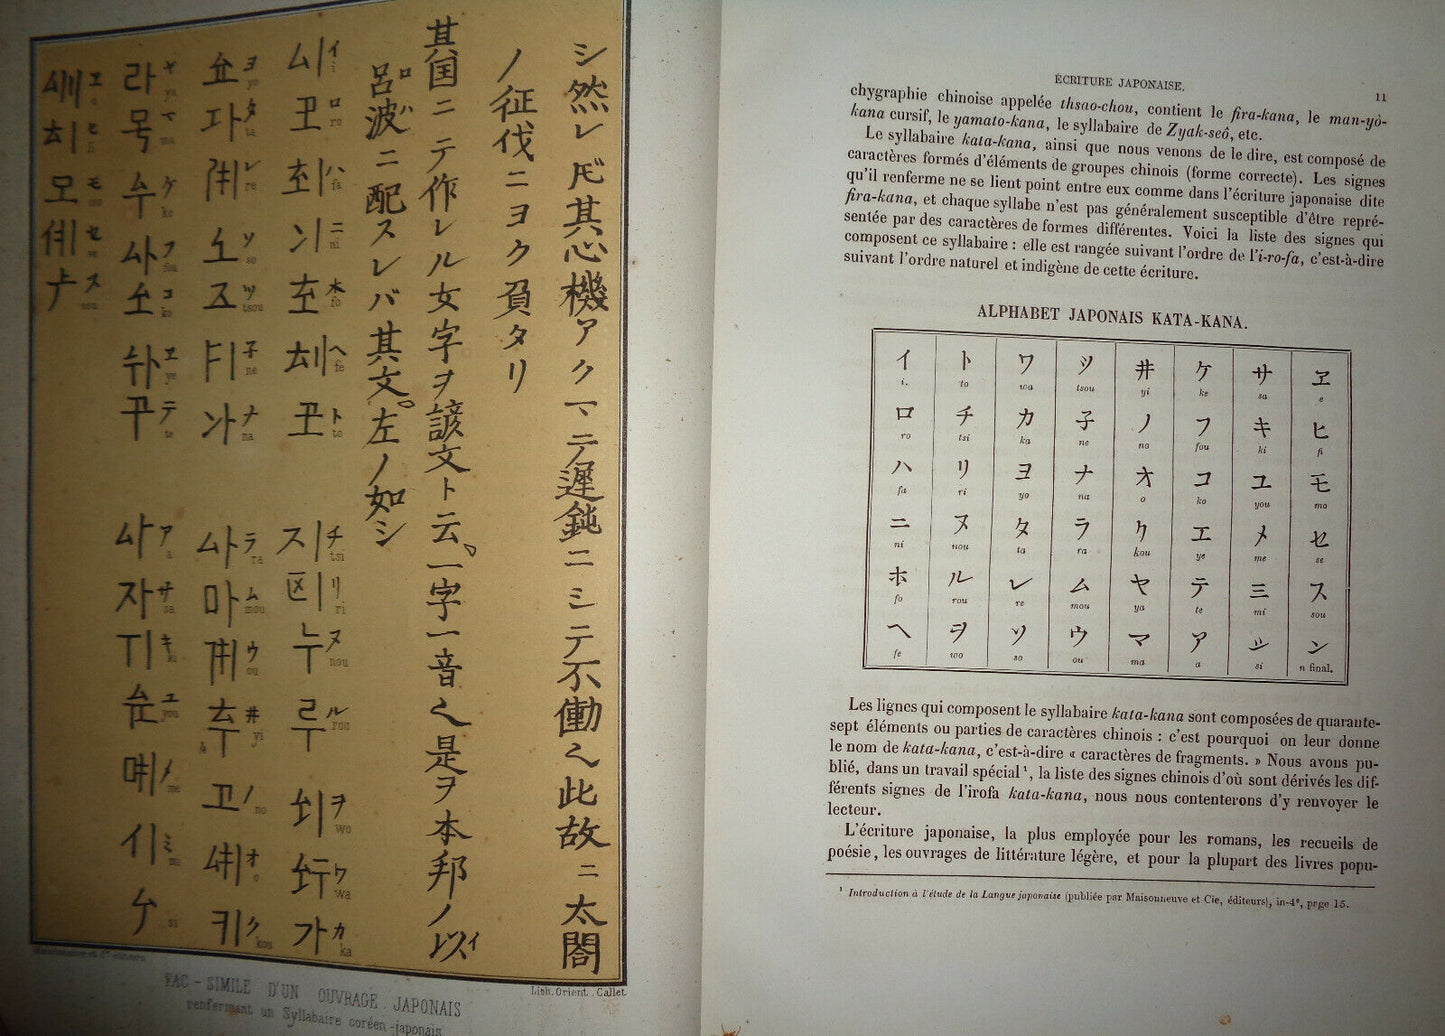 シ然レ𪜈其心機アクマテ遲鈍ニシテ不働く此故ニ太閤
ノ征伐ニヨク負タリ
其国ニテ作レル女字ヲ諺文ト云。一字一音く是ヲ本邦ノ以イ
呂ロ波ハニ配スレバ其文。左ノ如シ
イ i ロ ro ハ fa ニ ni ホ fo ヘ fe ト to 지 チ tsi リ ri 누 ヌ nou 루 ル rou ヲ wo ワ wa 가 カ ka
ヨ yo タ ta レ re ソ so ツ tsou 子 ne ナ na ラ ra 마 ム mou ウ ou 井 yi 고 ノ no オ o 키 ク kou
라 ヤ ya マ ma 수 ケ ke 사 フ fou コ ko エ ye 꾸 テ te 사 ア a 자 サ sa キ ki ユ you 몌 メ me 이 ミ mi si
ヱ e ヒ fi 모 モ mo セ se ス sou
Maisonneuve et Cie éditeurs.
Lith. Orient. Callet
FAC-SIMILE D'UN OUVRAGE JAPONAIS
renfermant un Syllabaire coréen-japonais
ÉCRITURE JAPONAISE.
11
chygraphie chinoise appelée thsao-chou, contient le fira-kana, le man-yò-
kana cursif, le yamato-kana, le syllabaire de Zyak-seô, etc.
Le syllabaire kata-kana, ainsi que nous venons de le dire, est composé de
caractères formés d'éléments de groupes chinois (forme correcte). Les signes
qu'il renferme ne se lient point entre eux comme dans l'écriture japonaise dite
fira-kana, et chaque syllabe n'est pas généralement susceptible d'être repré-
sentée par des caractères de formes différentes. Voici la liste des signes qui
composent ce syllabaire : elle est rangée suivant l'ordre de l'i-ro-fa, c'est-à-dire
suivant l'ordre naturel et indigène de cette écriture.
ALPHABET JAPONAIS KATA-KANA.
イ ト ワ ツ 井 ケ サ ヱ
i. to wa tsou yi ke sa e
ロ チ カ 子 ノ フ キ ヒ
ro tsi ka ne no fou ki fi
ハ リ ヨ ナ オ コ ユ モ
fa ri yo na o ko you mo
ニ ヌ タ ラ ク エ メ セ
ni nou ta ra kou ye me se
ホ ル レ ム ヤ テ ミ ス
fo rou re mou ya te mi sou
ヘ ヲ ソ ウ マ ア シ ン
fe wo so ou ma a si n final.
Les lignes qui composent le syllabaire kata-kana sont composées de quarante-
sept éléments ou parties de caractères chinois : c'est pourquoi on leur donne
le nom de kata-kana, c'est-à-dire « caractères de fragments. » Nous avons pu-
blié, dans un travail spécial¹, la liste des signes chinois d'où sont dérivés les dif-
férents signes de l'irofa kata-kana, nous nous contenterons d'y renvoyer le
lecteur.
L'écriture japonaise, la plus employée pour les romans, les recueils de
poésie, les ouvrages de littérature légère, et pour la plupart des livres popu-
¹ Introduction à l'étude de la Langue japonaise (publiée par Maisonneuve et Cie, éditeurs), in-4°, page 15.